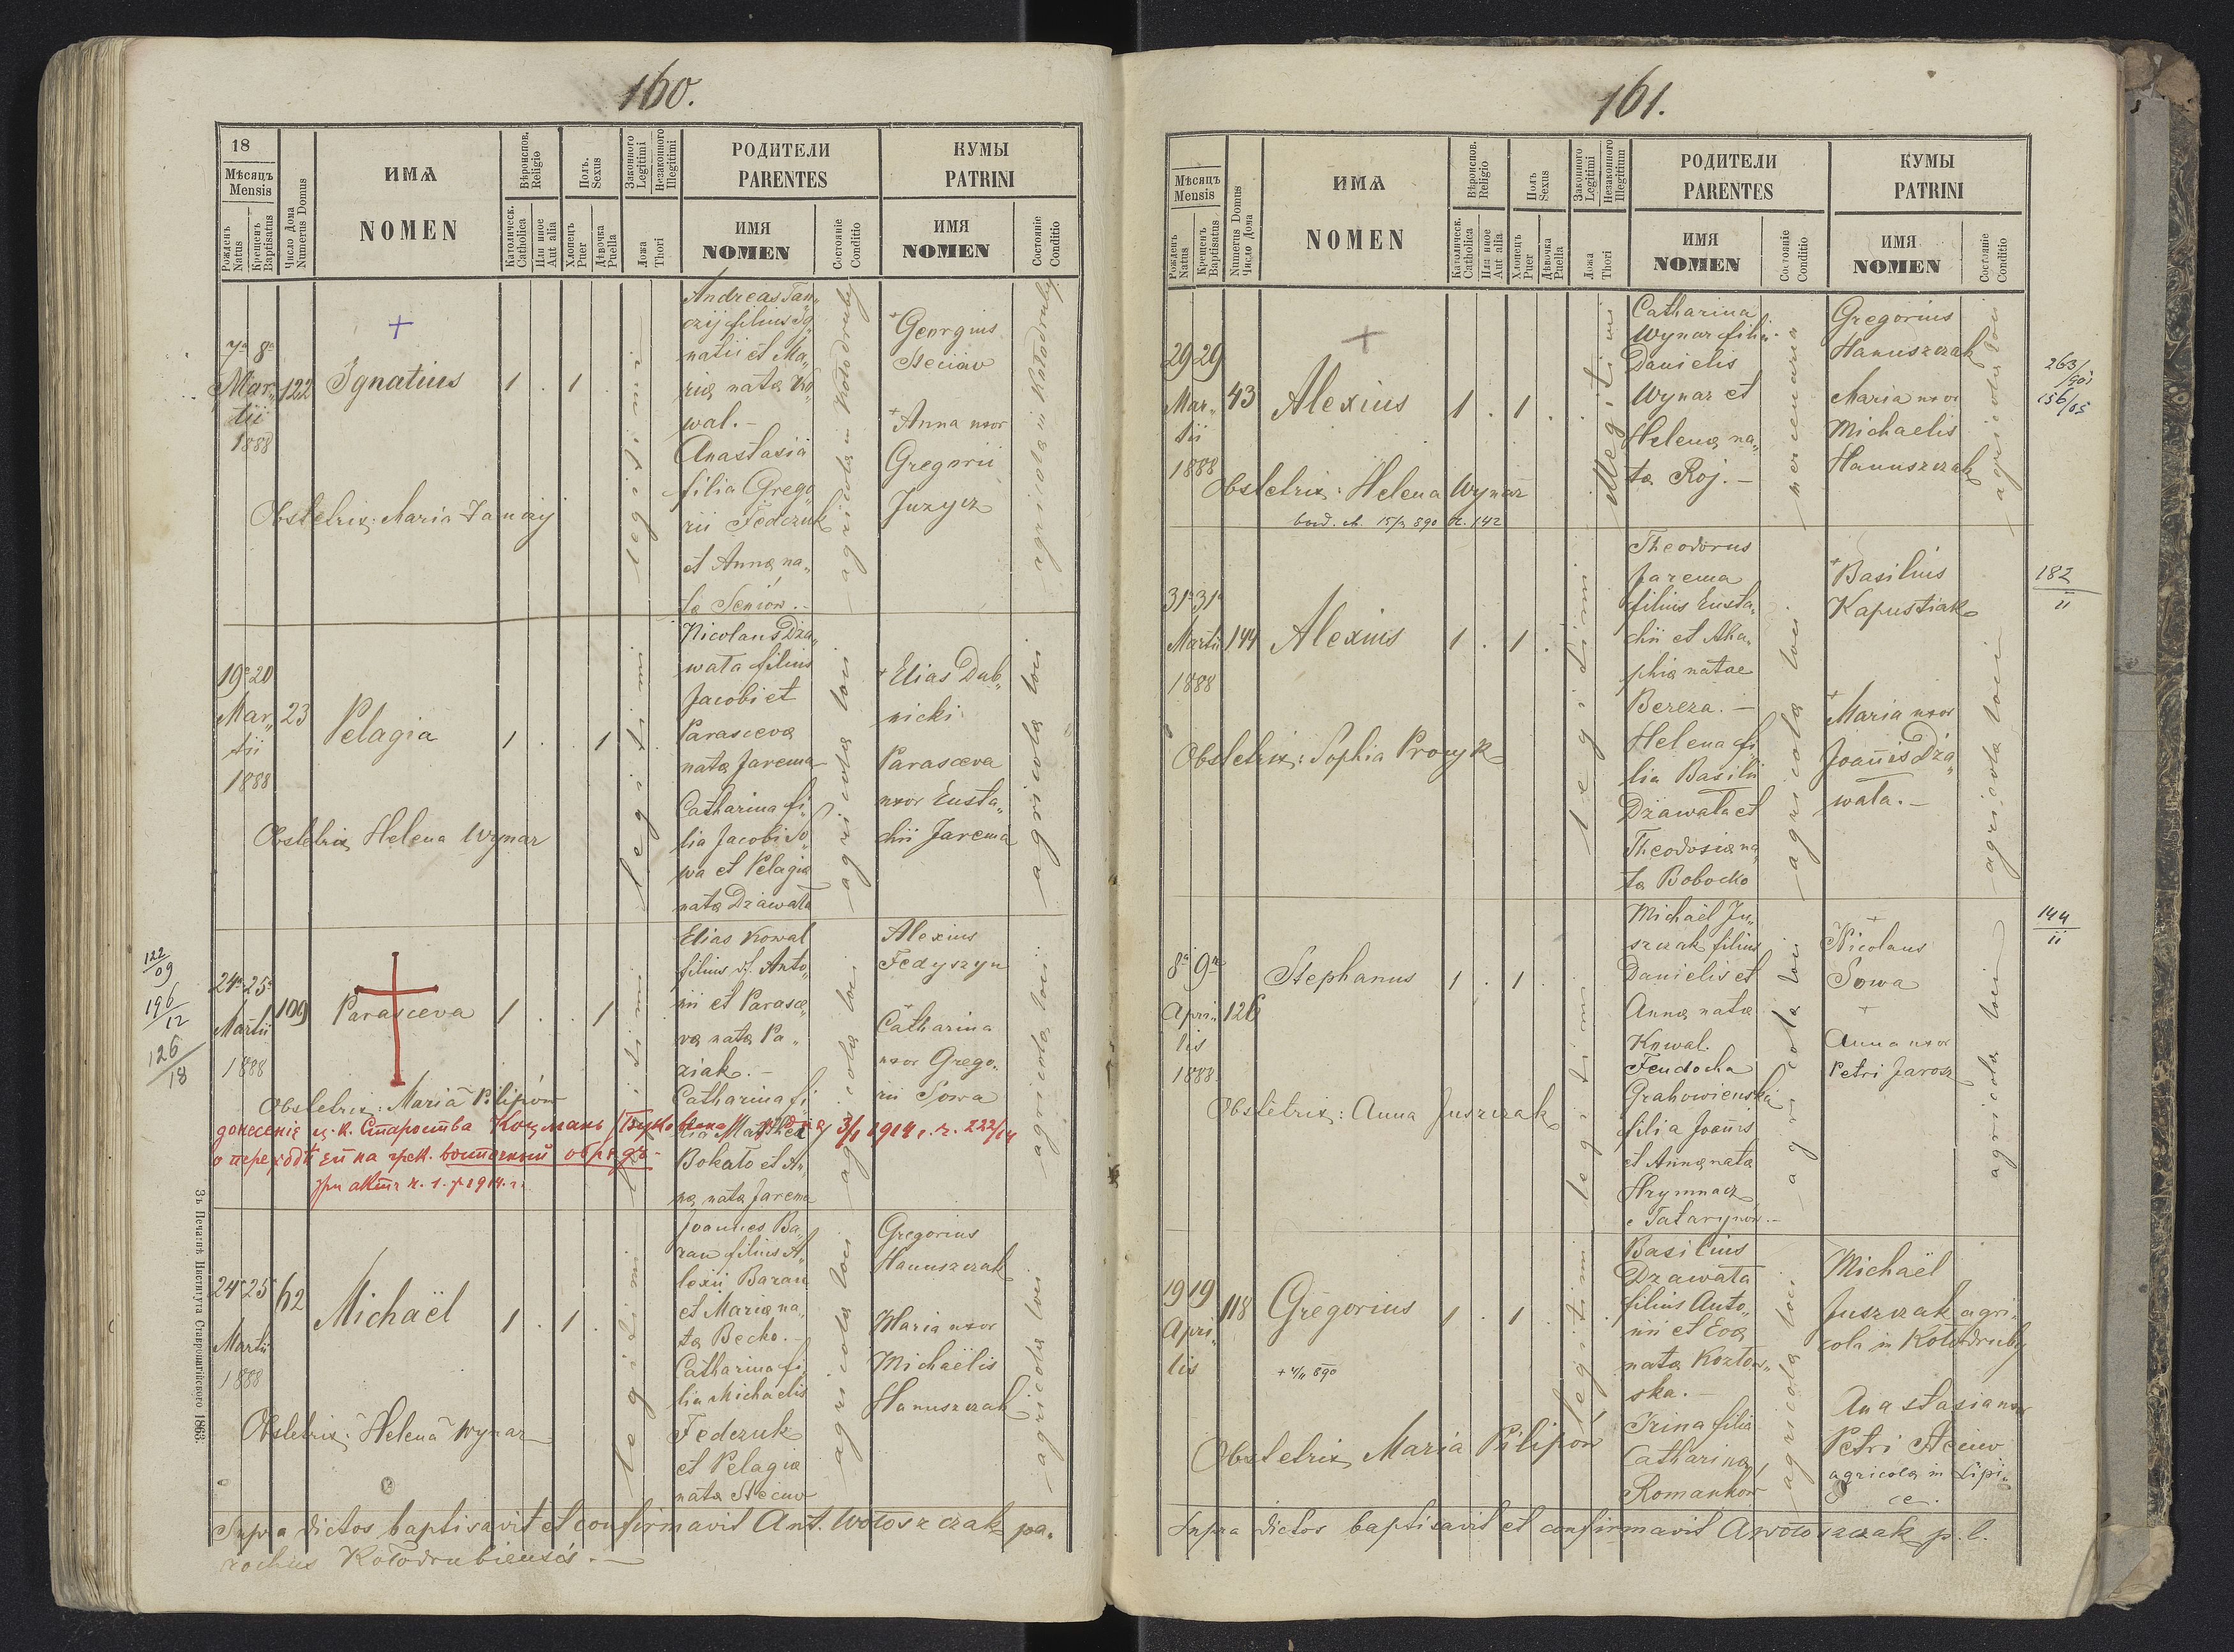 160.
18
Мѣсяцъ
Mensis
Рожденъ
Natus
Крещенъ
Baptisatus
Число Дома
Numerus Domus
ИМѦ
NOMEN
Вѣроиспов.
Religio
Католическ.
Catholica
Или иное
Aut alia
Полъ.
Sexus
Хлопецъ
Puer
Дѣвочка
Puella
Законного
Legitimi
Незаконного
Illegitimi
Ложа
Thori
РОДИТЕЛИ
PARENTES
ИМЯ
NOMEN
Состояніе
Conditio
КУМЫ
PATRINI
ИМЯ
NOMEN
Состояніе
Conditio
7a 8a
Mar„
tii
1888
122
Ignatius
1 . 1 .
legitimi
Andreas Tan„
czij filius Ig„
natii et Ma„
ria nata Ko„
wal. –
Anastasia
filia Grego
rii Fedczuk
et Anna na„
ta Seniow. –
agricola in Kołodruby
Georgius
Steciiw
Anna uxor
Gregorii
Juzycz
agricola in Kołodruby
Obstetrix: Maria
19a 20
Mar„
tii
1888
23
Pelagia
1 . . 1
legitimi
Nicolaus Dza„
wata filius
Jacobi et
Parasceva
nata Jarema
Catharina fi„
lia Jacobi So„
wa et Pelagia
nata Dzawata
agricola loci
Elias Dub„
nicki
Parasceva
uxor Eusta„
chii Jarema
agricola loci
Obstetrix Helena Wynar
122/09
196/12
126/18
24a 25a
Martii
1888
109
Parasceva
1 . . 1
legitimi
Elias Kowal
filius Anto„
nii et Parasce„
va nata Pa„
ziak. –
Catharina fi„
lia Matthei
Bokało et An„
na nata Jarema
agricola loci
Alexius
Fedyszyn
Catharina
uxor Grego„
rii Sowa
agricola loci
Obstetrix: Maria Pilipów
донесеніе ц. к. Староства Коцмань 3/1 1914 г. ч. 222/14
о переходѣ ей на грек. восточный обрядъ –
при актѣ ч. 1. р 1914. г.
24a 25
Martii
1888
62
Michaël
1 . 1 .
legitimi
Joannes Ba„
ran filius A„
lexii Baran
et Maria na„
ta Becko. –
Catharina fi„
lia Michaelis
Federuk
et Pelagia
nata Steciiw
agricola loci
Gregorius
Hanuszczak
Maria uxor
Michaëlis
Hanuszczak
agricola loci
Obstetrix: Helena Wynar
Supra dictos baptisavit et confirmavit Ant. Wołoszczak pa„
rochus Kołodrubiensis. –
Зъ Печатнѣ Института Ставропигійского 1863.
161.
Мѣсяцъ
Mensis
Рожденъ
Natus
Крещенъ
Baptisatus
Numerus Domus
Число Дома
ИМѦ
NOMEN
Вѣроиспов.
Religio
Католическ.
Catholica
Или иное
Aut alia
Полъ
Sexus
Хлопецъ
Puer
Дѣвочка
Puella
Законного
Legitimi
Незаконного
Illegitimi
Ложа
Thori
РОДИТЕЛИ
PARENTES
ИМЯ
NOMEN
Состояніе
Conditio
КУМЫ
PATRINI
ИМЯ
NOMEN
Состояніе
Conditio
29 29
Mar„
tii
1888
43
Alexius
1 . 1 .
illegitimi
Catharina
Wynar filia
Danielis
Wynar et
Helena na„
ta Roj. –
mercenaria
Gregorius
Hanuszczak
Maria uxor
Michaelis
Hanuszczak
agricola loci
263/901
156/05
Obstetrix: Helena Wynar
31a 31a
Martii
1888
144
Alexius
1 . 1 .
legitimi
Theodorus
Jarema
filius Eusta„
chii et Aha„
phia natae
Bereza. –
Helena fi
lia Basilii
Dzawata et
Theodosia na„
ta Bobocko
agricola loci
Basilius
Kapustiak
Maria uxor
Joannis Dza„
wata. –
agricola loci
182
ii
Obstetrix: Sophia Procyk
8a 9a
Apri„
lis
1888
126
Stephanus
1 . 1 .
legitimi
Michaël Ju„
szczak filius
Danielis et
Anna nata
Kowal.
Feudocha
Grahowienska
filia Joannis
et Anna nata
Hrymnacz
e Tatarynów. –
agricola loci
Nicolaus
Sowa
Anna uxor
Petri Jarosz
agricola loci
144
ii
Obstetrix: Anna Juszczak
19 19
Apri„
lis
118
Gregorius
1 . 1 .
legitimi
Basilius
Dzawata
filius Anto„
nii et Eva
nata Kozłow„
ska. –
Irina filia
Catharina
Romankow
agricola loci
Michaël
Juszczak agri„
cola in Kołodruby
Anastasia uxor
Petri Steciw
agricola in Lipi„
ce.
Obstetrix Maria Pilipów
Supra dictos baptisavit et confirmavit A Wołoszczak p. l.